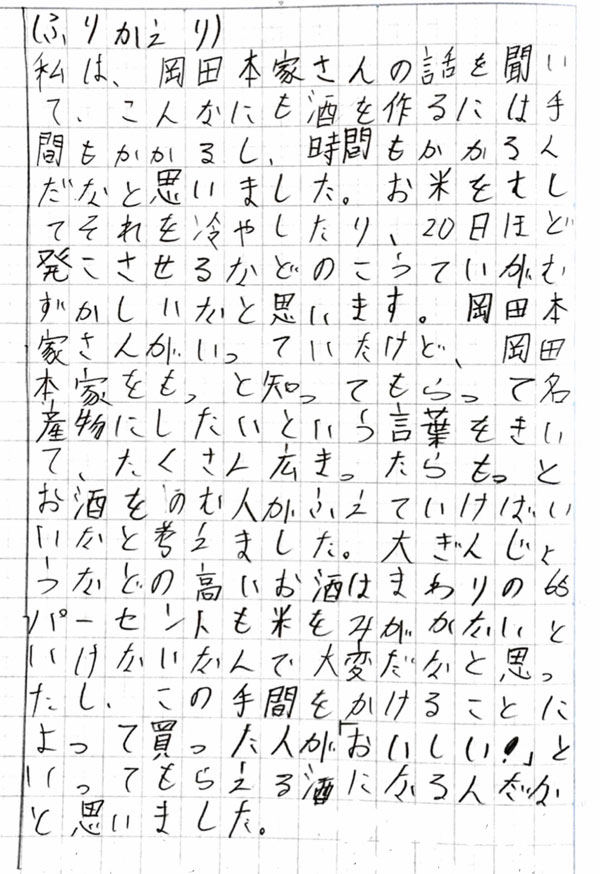 (ふりかえり)
私は、岡田本家さんの話を聞い
て、こんなにも酒を作るには手
間もかかるし、時間もかかるん
だなと思いました。お米をむし
てそれを冷やしたり、20日ほど
発こさせるなどのこうていがむ
ずかしいなと思います。岡田本
家さんがいっていたけど、岡田
本家をもっと知ってもらって名
産物にしたいという言葉をきい
て、たくさん広まったらもっと
お酒をのむ人がふえていけばい
いなと考えました。大ぎんじょ
うなどの高いお酒はまわりの65
パーセントも米をみがかないと
いけないなんて大変だなと思っ
たし、この手間をかけることに
よって買った人が「おいしい!」と
いってもらえる酒になるんだな
と思いました。